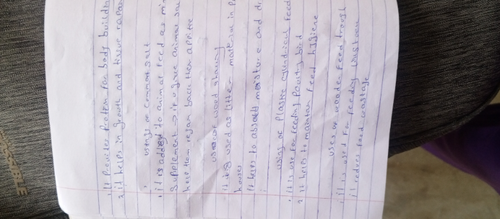 1. It provides protein for body building
2. it helps in growth and tissue repair
uses of common salt
1. It is added to animal feed as
Helps to give animal salt
uses of wood shaving
1. It is used as litter material in
house
2. It helps to absorb moisture and
uses of plastic cylindrical feed
1. It is use to feeding poultry bird
2. It helps to maintain feed hygiene
uses of wooden feed trough
1. It is used for feeding livestock
2. it reduces feed wastage